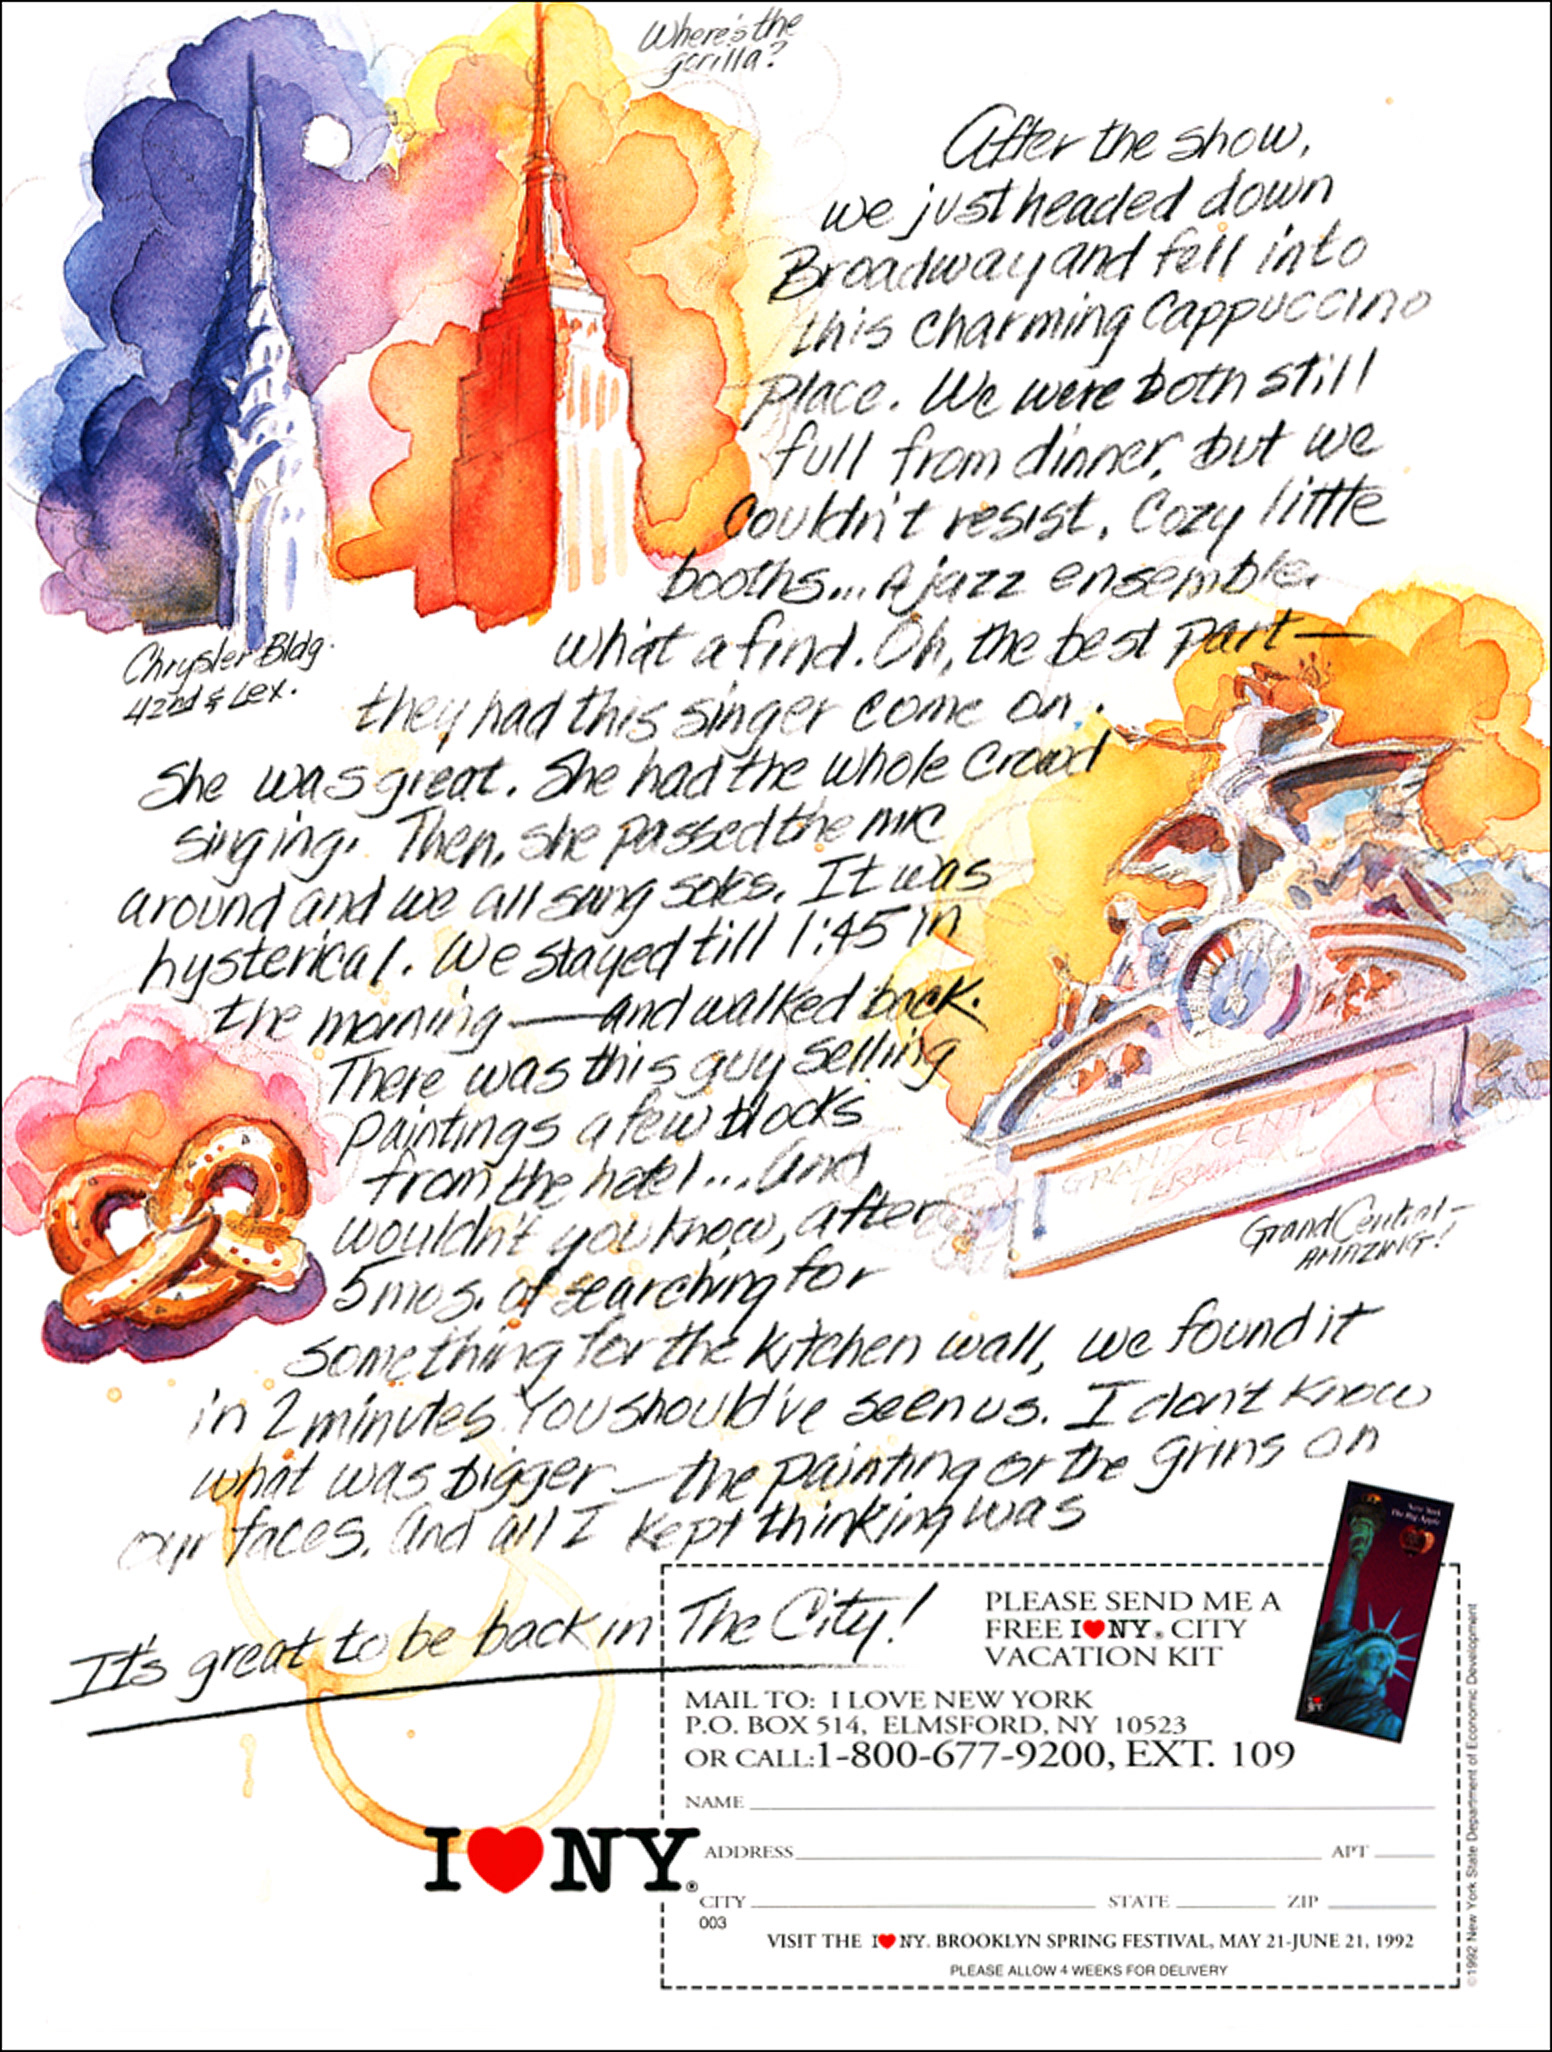 Where's the
gorilla?
After the show,
we just headed down
Broadway and fell into
this charming cappuccino
place. We were both still
full from dinner, but we
couldn't resist. Cozy little
booths... A jazz ensemble.
What a find. Oh, the best part—
they had this singer come on.
She was great. She had the whole crowd
singing. Then, she passed the mic
around and we all sang solos. It was
hysterical. We stayed till 1:45 in
the morning — and walked back.
There was this guy selling
paintings a few blocks
from the hotel... And
wouldn't you know, after
5 mos. of searching for
something for the kitchen wall, we found it
in 2 minutes. You should've seen us. I don't know
what was bigger — the painting or the grins on
our faces. And all I kept thinking was
It's great to be back in The City!
Chrysler Bldg.
42nd & Lex.
GRAND CENT
TERMINAL
Grand Central—
AMAZING!
New York
The Big Apple
I ♥ NY
PLEASE SEND ME A
FREE I♥NY® CITY
VACATION KIT
MAIL TO: I LOVE NEW YORK
P.O. BOX 514, ELMSFORD, NY 10523
OR CALL: 1-800-677-9200, EXT. 109
NAME
ADDRESS APT
CITY STATE ZIP
003
VISIT THE I♥NY. BROOKLYN SPRING FESTIVAL, MAY 21-JUNE 21, 1992
PLEASE ALLOW 4 WEEKS FOR DELIVERY
I♥NY®
©1992 New York State Department of Economic Development